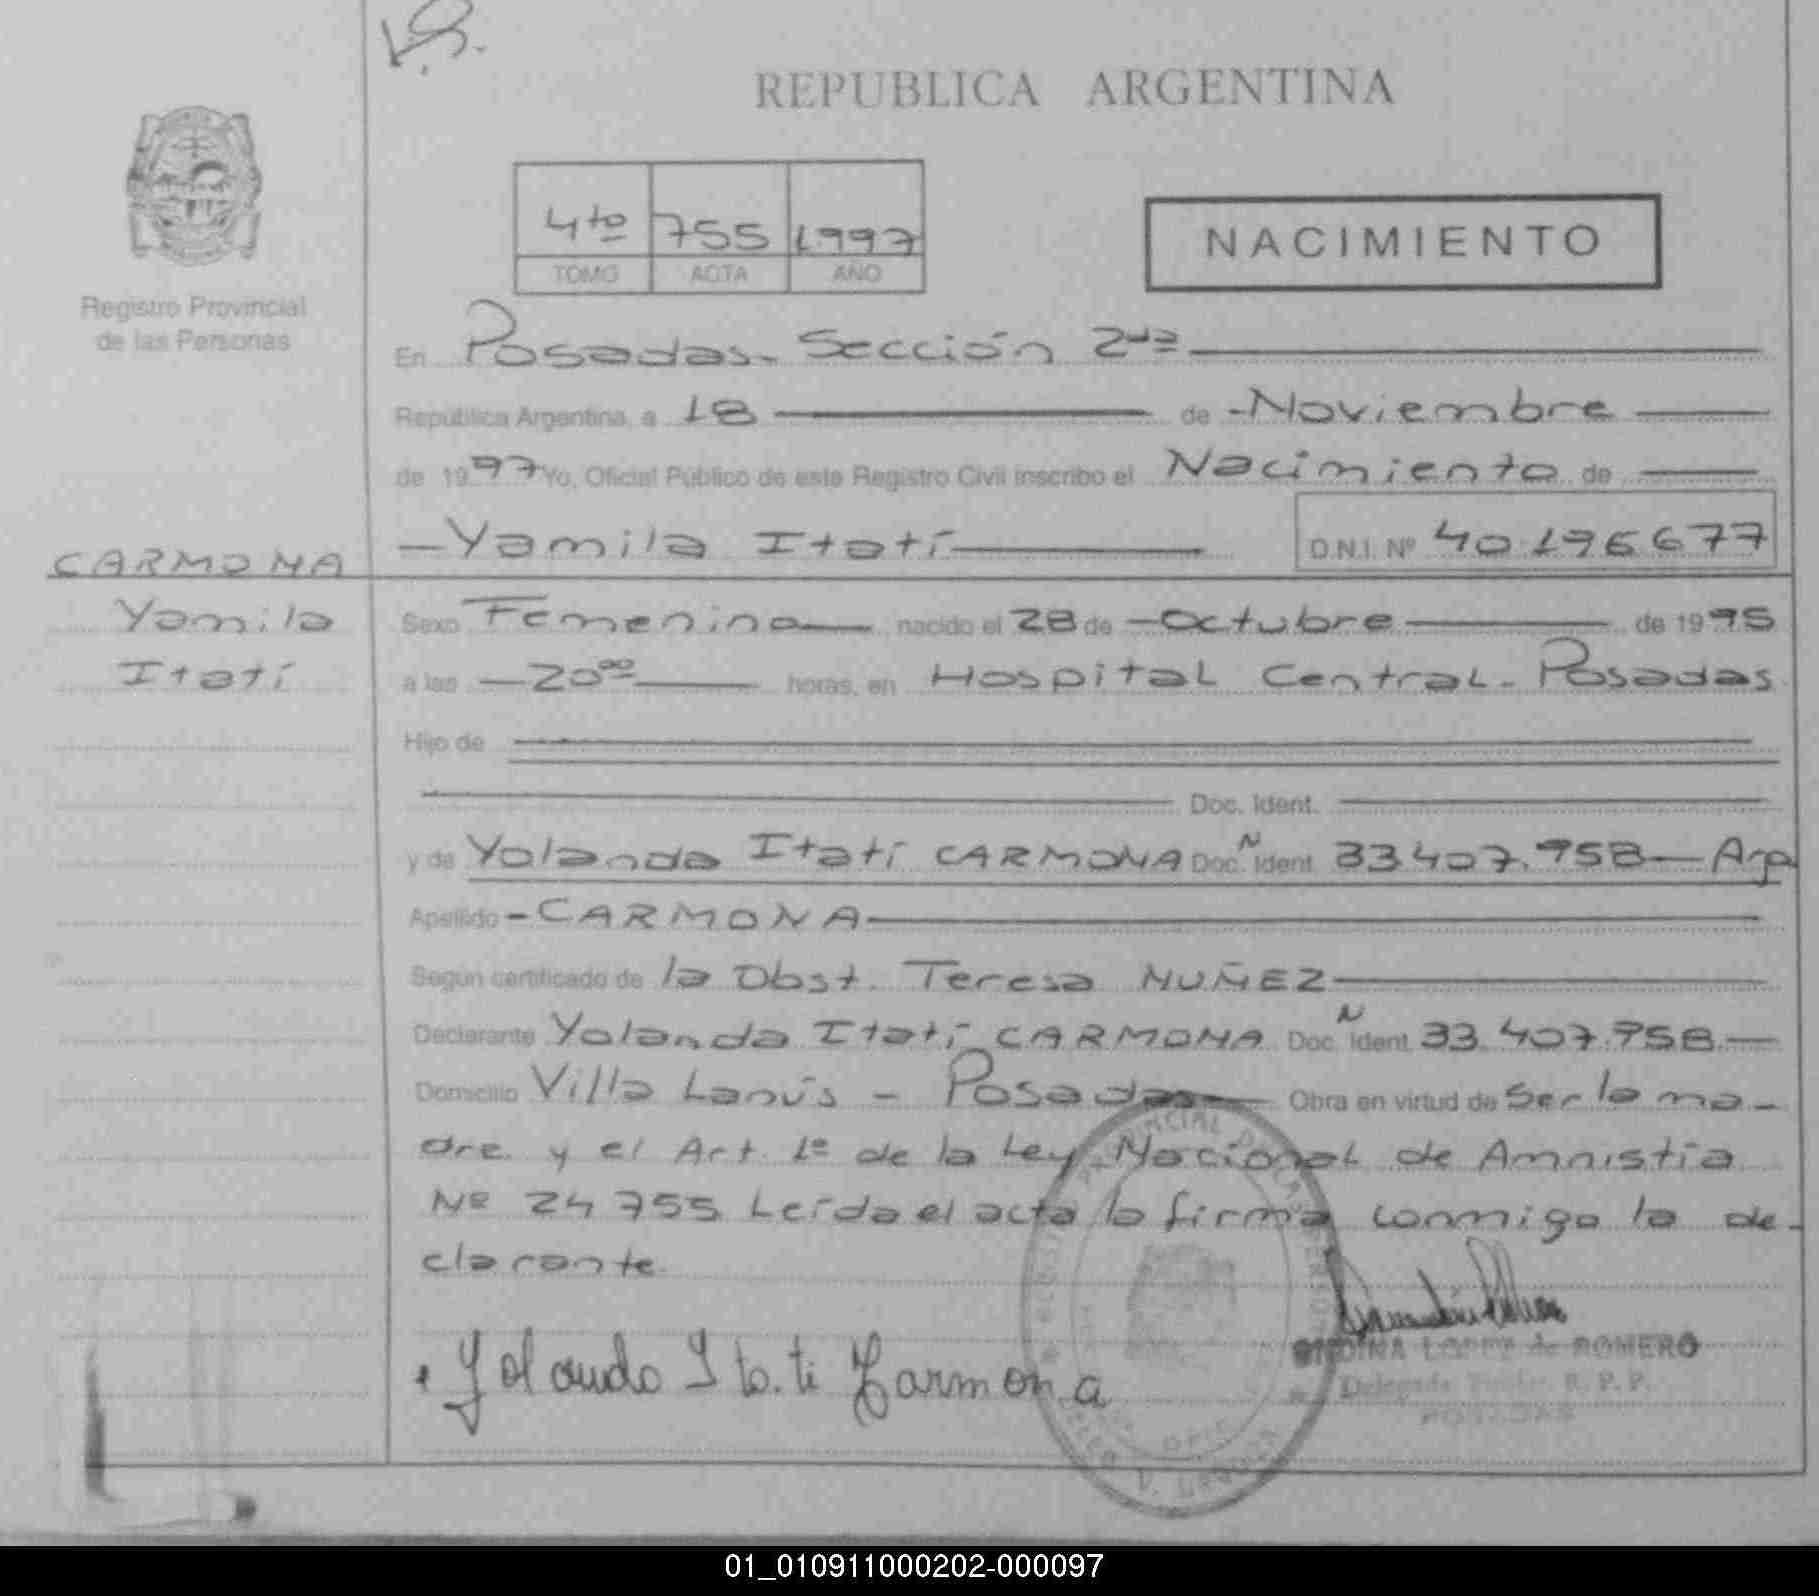 REPUBLICA ARGENTINA
4to 755 1997
TOMO ACTA AÑO
NACIMIENTO
Registro Provincial
de las Personas
En Posadas - Sección 2da
República Argentina, a 18 de Noviembre
de 1997 Yo, Oficial Público de este Registro Civil inscribo el Nacimiento de
Yamila Itatí D.N.I. Nº 40.196.677
CARMONA
Yamila
Itatí
Sexo Femenino nacido el 28 de Octubre de 1995
a las 20⁰⁰ horas, en Hospital Central - Posadas
Hijo de
Doc. Ident.
y de Yolanda Itatí CARMONA Doc. N Ident. 33.407.958 - Arg
Apellido - CARMONA
Según certificado de la Obst. Teresa NUÑEZ
Declarante Yolanda Itatí CARMONA Doc. N Ident. 33.407.958
Domicilio Villa Lanús - Posadas Obra en virtud de Ser la ma-
dre y el Art. 1º de la Ley Nacional de Amnistia
Nº 24755 Leída el acta la firma conmigo la de-
clarante.
Yolanda Itati Carmona
LOPEZ de ROMERO
Delegada R. P. P.
POSADAS
01_010911000202-000097